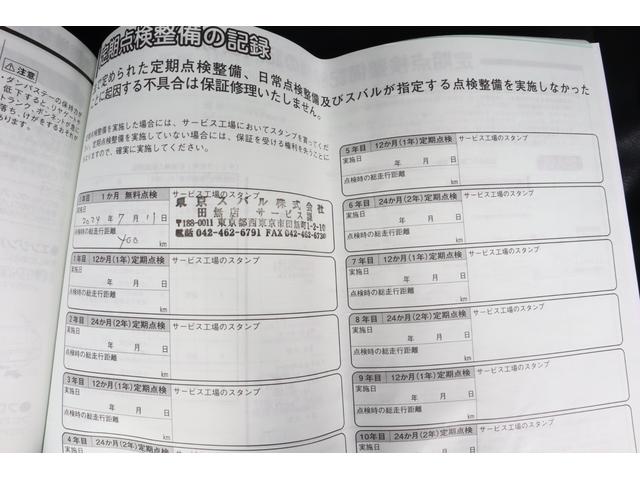 定期点検整備の記録
定められた定期点検整備、日常点検整備及びスバルが指定する点検整備を実施しなかった
ことに起因する不具合は保証修理いたしません。
整備を実施した場合には、サービス工場においてスタンプを貰ってください。
定期点検整備を実施していない場合には、保証を受ける権利を失うことに
なりますので、確実に実施してください。
1か月 無料点検
サービス工場のスタンプ
実施日
2024年7月11日
400
km
東京スバル株式会社
田無店 サービス課
〒188-0011 東京都西東京市田無町1-2-10
電話 042-462-6791 FAX 042-462-6730
1年目 12か月(1年)定期点検
サービス工場のスタンプ
実施日
年 月 日
点検時の総走行距離
km
2年目 24か月(2年)定期点検
サービス工場のスタンプ
実施日
年 月 日
点検時の総走行距離
km
3年目 12か月(1年)定期点検
サービス工場のスタンプ
実施日
年 月 日
点検時の総走行距離
km
4年目 24か月(2年)定期点検
サービス工場のスタンプ
5年目 12か月(1年)定期点検
サービス工場のスタンプ
実施日
年 月 日
点検時の総走行距離
km
6年目 24か月(2年)定期点検
サービス工場のスタンプ
実施日
年 月 日
点検時の総走行距離
km
7年目 12か月(1年)定期点検
サービス工場のスタンプ
実施日
年 月 日
点検時の総走行距離
km
8年目 24か月(2年)定期点検
サービス工場のスタンプ
実施日
年 月 日
点検時の総走行距離
km
9年目 12か月(1年)定期点検
サービス工場のスタンプ
実施日
年 月 日
点検時の総走行距離
km
10年目 24か月(2年)定期点検
サービス工場のスタンプ
注意
ダンパステーの保持力が
低下すると、リヤゲート